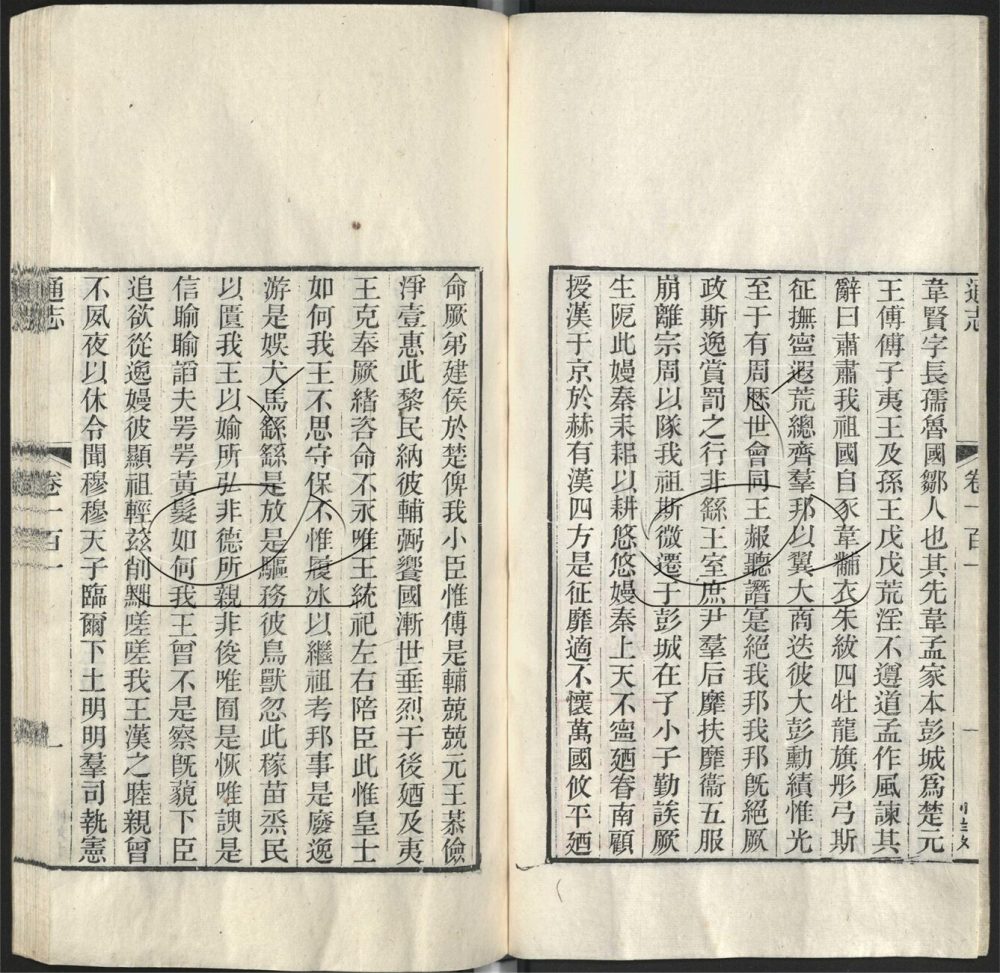 通志 卷一百一 一
韋賢字長孺魯國鄒人也其先韋孟家本彭城爲楚元
王傅傅子夷王及孫王戊戊荒淫不遵道孟作風諫其
辭曰肅肅我祖國自豕韋黼衣朱紱四牡龍旗彤弓斯
征撫寧遐荒總齊羣邦以翼大商迭彼大彭勳績惟光
至于有周歴世會同王赧聽譖寔絕我邦我邦旣絕厥
政斯逸賞罰之行非繇王室庶尹羣后靡扶靡衞五服
崩離宗周以隊我祖斯微遷于彭城在予小子勤誒厥
生阨此嫚秦耒耜以耕悠悠嫚秦上天不寧廼眷南顧
授漢于京於赫有漢四方是征靡適不懷萬國攸平廼
命厥弟建侯於楚俾我小臣惟傅是輔兢兢元王恭儉
淨壹惠此黎民納彼輔弼饗國漸世垂烈于後廼及夷
王克奉厥緒咨命不永唯王統祀左右陪臣此惟皇士
如何我王不思守保不惟履冰以繼祖考邦事是廢逸
游是娛犬馬繇繇是放是驅務彼鳥獸忽此稼苗烝民
以匱我王以媮所弘非德所親非俊唯囿是恢唯諛是
信睮睮諂夫咢咢黃髮如何我王曾不是察旣藐下臣
追欲從逸嫚彼顯祖輕茲削黜嗟嗟我王漢之睦親曾
不夙夜以休令聞穆穆天子臨爾下土明明羣司執憲
通志 卷一百一 一